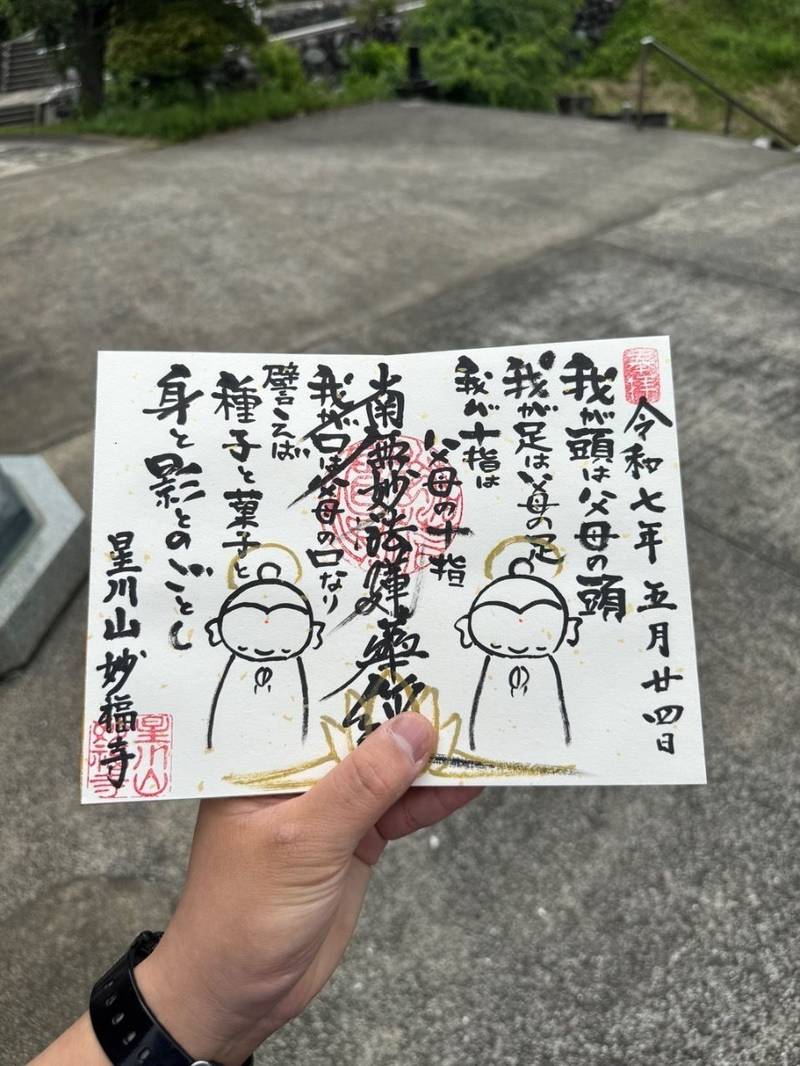 奉拝
令和七年 五月廿四日
我が頭は父母の頭
我が足は父母の足
我が十指は
父母の十指
南無妙法蓮華経
我が口は父母の口なり
譬えば
種子と菓子と
身と影とのごとし
星川山妙福寺
星川山
妙福寺